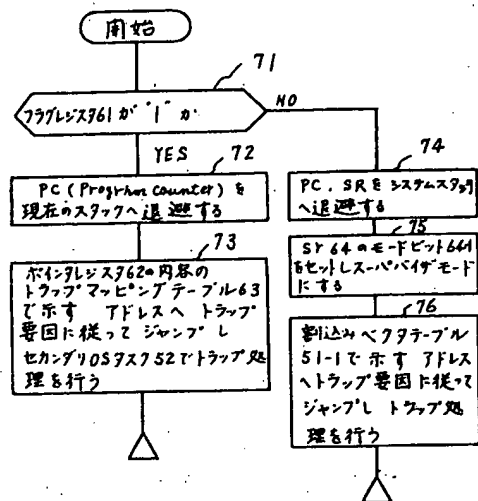 開始
71
フラグレジスタ61が"1"か
NO
YES
72
PC (Program counter) を
現在のスタックへ退避する
73
ポインタレジスタ62の内容の
トラップマッピングテーブル63
で示す アドレスへ トラップ
要因に従って ジャンプし
セカンダリOSタスク52でトラップ処
理を行う
74
PC, SRをシステムスタック
へ退避する
75
Sr 64のモードビット641
をセットしスーパバイザモード
にする
76
割込みベクタテーブル
51-1で示す アドレス
へトラップ要因に従って
ジャンプし トラップ処
理を行う